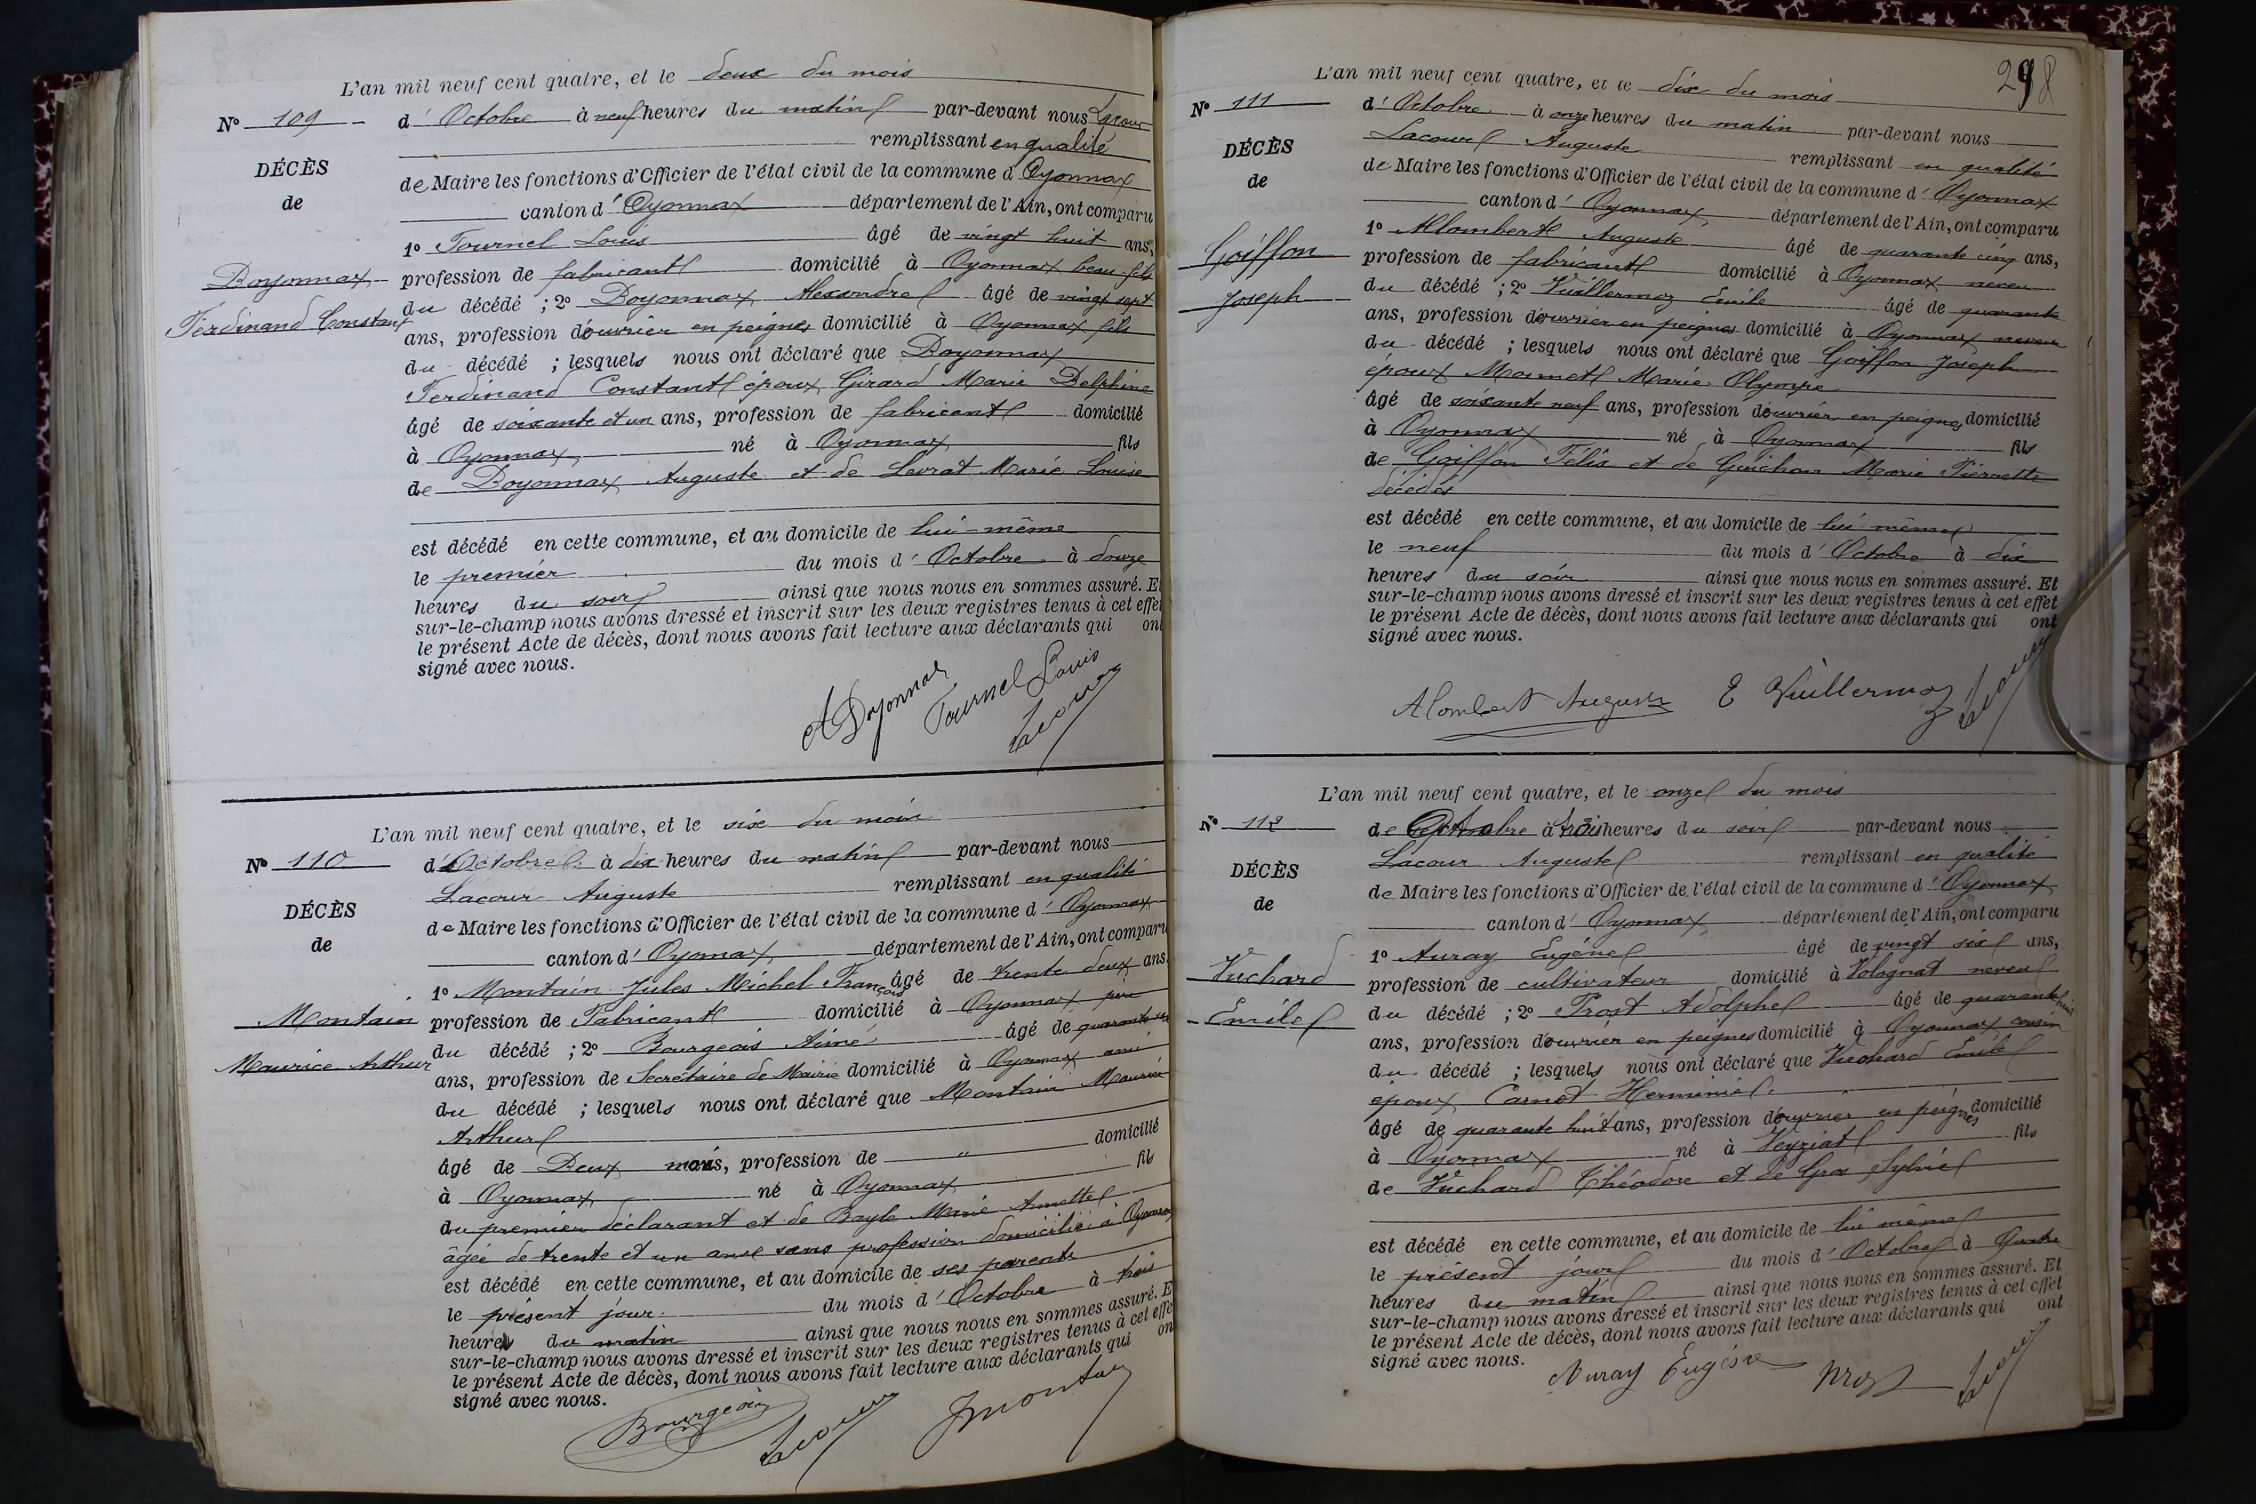 L'an mil neuf cent quatre, et le deux du mois
N° 109
d'Octobre à neuf heures du matin par-devant nous Lacour
remplissant en qualité
DÉCÈS
de Maire les fonctions d'Officier de l'état civil de la commune d'Oyonnax
de
canton d'Oyonnax département de l'Ain, ont comparu
1° Tournel Louis âgé de vingt huit ans,
Doyonnax
profession de fabricant domicilié à Oyonnax beau-fils
Ferdinand Constant
du décédé ; 2° Doyonnax Alexandre âgé de vingt sept
ans, profession d'ouvrier en peignes domicilié à Oyonnax fils
du décédé ; lesquels nous ont déclaré que Doyonnax
Ferdinand Constant époux Girard Marie Delphine
âgé de soixante et un ans, profession de fabricant domicilié
à Oyonnax né à Oyonnax fils
de Doyonnax Auguste et de Levrat Marie Louise
est décédé en cette commune, et au domicile de lui-même
le premier du mois d'Octobre à douze
heures du soir ainsi que nous nous en sommes assuré. Et
sur-le-champ nous avons dressé et inscrit sur les deux registres tenus à cet effet
le présent Acte de décès, dont nous avons fait lecture aux déclarants qui ont
signé avec nous.
A Doyonnax Tournel Louis Lacour
L'an mil neuf cent quatre, et le six du mois
N° 110
d'Octobre à dix heures du matin par-devant nous
Lacour Auguste remplissant en qualité
DÉCÈS
de Maire les fonctions d'Officier de l'état civil de la commune d'Oyonnax
de
canton d'Oyonnax département de l'Ain, ont comparu
1° Montain Jules Michel François âgé de trente deux ans
Montain
profession de Fabricant domicilié à Oyonnax père
Maurice Arthur
du décédé ; 2° Bourgeois Aimé âgé de quarante
ans, profession de Secrétaire de Mairie domicilié à Oyonnax ami
du décédé ; lesquels nous ont déclaré que Montain Maurice
Arthur
âgé de Deux mois, profession de " domicilié
à Oyonnax né à Oyonnax fils
du premier déclarant et de Bayle Marie Annette
âgée de trente et un ans sans profession domiciliée à Oyonnax
est décédé en cette commune, et au domicile de ses parents
le présent jour du mois d'Octobre à trois
heures du matin ainsi que nous nous en sommes assuré. E
sur-le-champ nous avons dressé et inscrit sur les deux registres tenus à cet effe
le présent Acte de décès, dont nous avons fait lecture aux déclarants qui on
signé avec nous.
Bourgeois Lacour J Montain
298
L'an mil neuf cent quatre, et le dix du mois
N° 111
d'Octobre à onze heures du matin par-devant nous
Lacour Auguste remplissant en qualité
DÉCÈS
de Maire les fonctions d'Officier de l'état civil de la commune d'Oyonnax
de
canton d'Oyonnax département de l'Ain, ont comparu
1° Alombert Auguste âgé de quarante cinq ans,
Goiffon
profession de fabricant domicilié à Oyonnax neveu
Joseph
du décédé ; 2° Vuillermoz Emile âgé de quarante
ans, profession d'ouvrier en peignes domicilié à Oyonnax neveu
du décédé ; lesquels nous ont déclaré que Goiffon Joseph
époux Monnet Marie Olympe
âgé de soixante neuf ans, profession d'ouvrier en peignes domicilié
à Oyonnax né à Oyonnax fils
de Goiffon Félix et de Guichon Marie Pierrette
décédés
est décédé en cette commune, et au domicile de lui même
le neuf du mois d'Octobre à dix
heures du soir ainsi que nous nous en sommes assuré. Et
sur-le-champ nous avons dressé et inscrit sur les deux registres tenus à cet effet
le présent Acte de décès, dont nous avons fait lecture aux déclarants qui ont
signé avec nous.
Alombert Auguste E Vuillermoz Lacour
L'an mil neuf cent quatre, et le onze du mois
N° 112
de Octobre à trois heures du soir par-devant nous
Lacour Auguste remplissant en qualité
DÉCÈS
de Maire les fonctions d'Officier de l'état civil de la commune d'Oyonnax
de
canton d'Oyonnax département de l'Ain, ont comparu
1° Auray Eugène âgé de vingt six ans,
Vuchard
profession de cultivateur domicilié à Volognat neveu
Emile
du décédé ; 2° Prost Adolphe âgé de quarante huit
ans, profession d'ouvrier en peignes domicilié à Oyonnax cousin
du décédé ; lesquels nous ont déclaré que Vuchard Emile
époux Carnot Herminie
âgé de quarante huit ans, profession d'ouvrier en peignes domicilié
à Oyonnax né à Veyziat fils
de Vuchard Théodore et de Gros Sylvie
est décédé en cette commune, et au domicile de lui même
le présent jour du mois d'Octobre à Quatre
heures du matin ainsi que nous nous en sommes assuré. Et
sur-le-champ nous avons dressé et inscrit sur les deux registres tenus à cet effet
le présent Acte de décès, dont nous avons fait lecture aux déclarants qui ont
signé avec nous.
Auray Eugène Prost Lacour